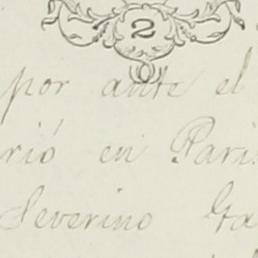 2
por ante el
rió en Pari
Severino Ga